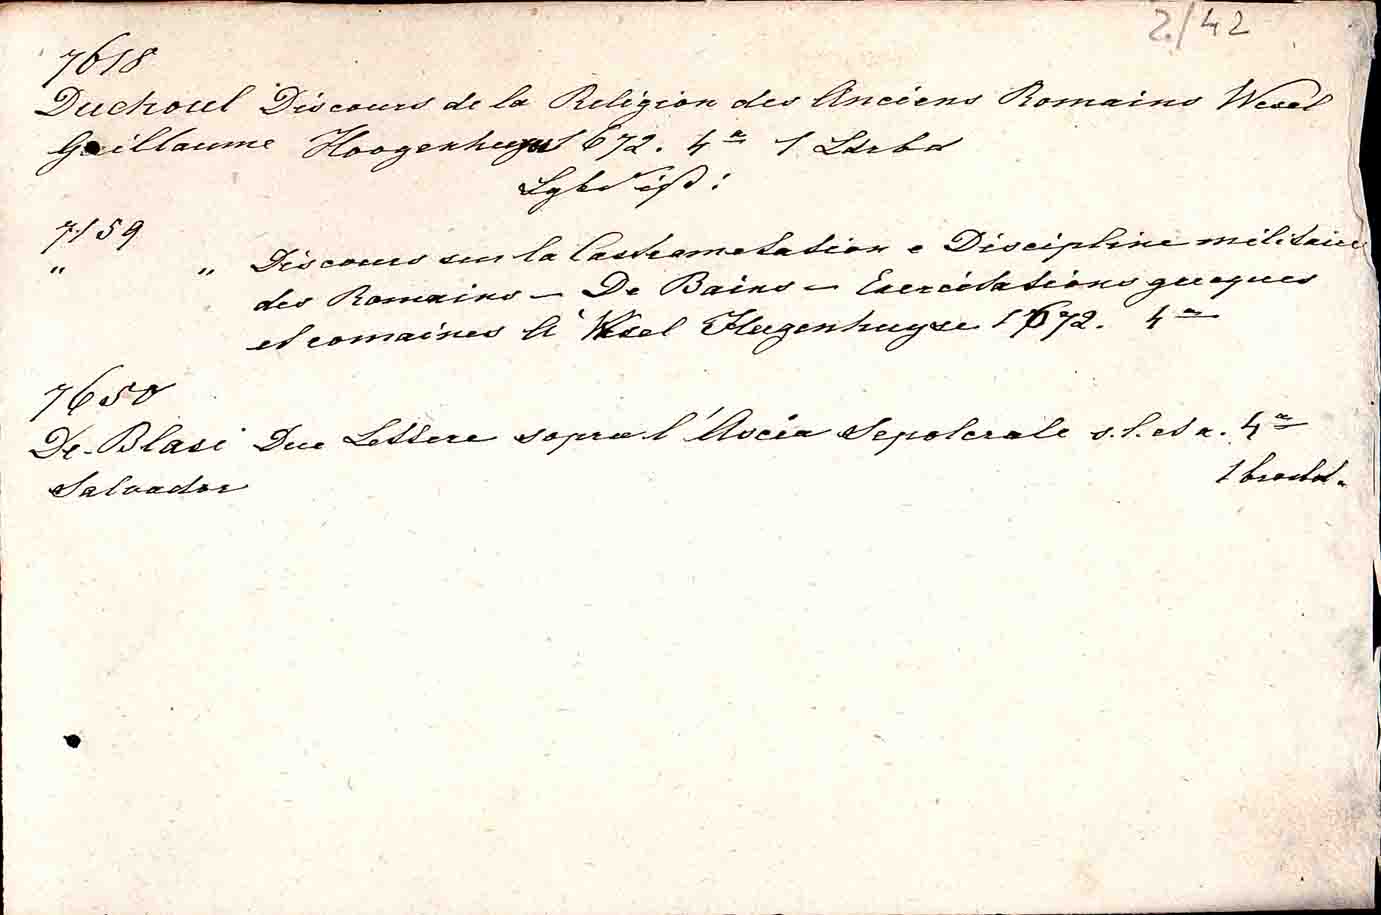 2./42
7618
Duchoul Discours de la Religion des Anciens Romains Wesel
Guillaume Hoogenhuys 1672. 4º 1 Ldrbd
7159
" " Discours sur la Castrametation e Discipline militaire
des Romains — De Bains — Exercitations grecques
et romaines A Wesel Hugenhuyse 1672. 4º
7650
De-Blasi Due Lettere sopra l'Ascia Sepolcrale s. l. et a. 4º
Salvador 1 broch.